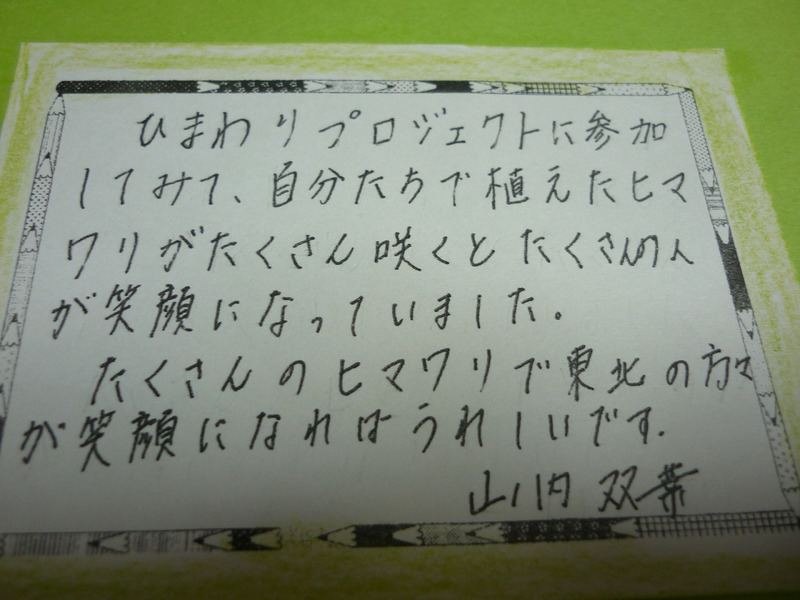 ひまわりプロジェクトに参加
してみて、自分たちで植えたヒマ
ワリがたくさん咲くとたくさんの人
が笑顔になっていました。
たくさんのヒマワリで東北の方々
が笑顔になればうれしいです.
山内 双葉